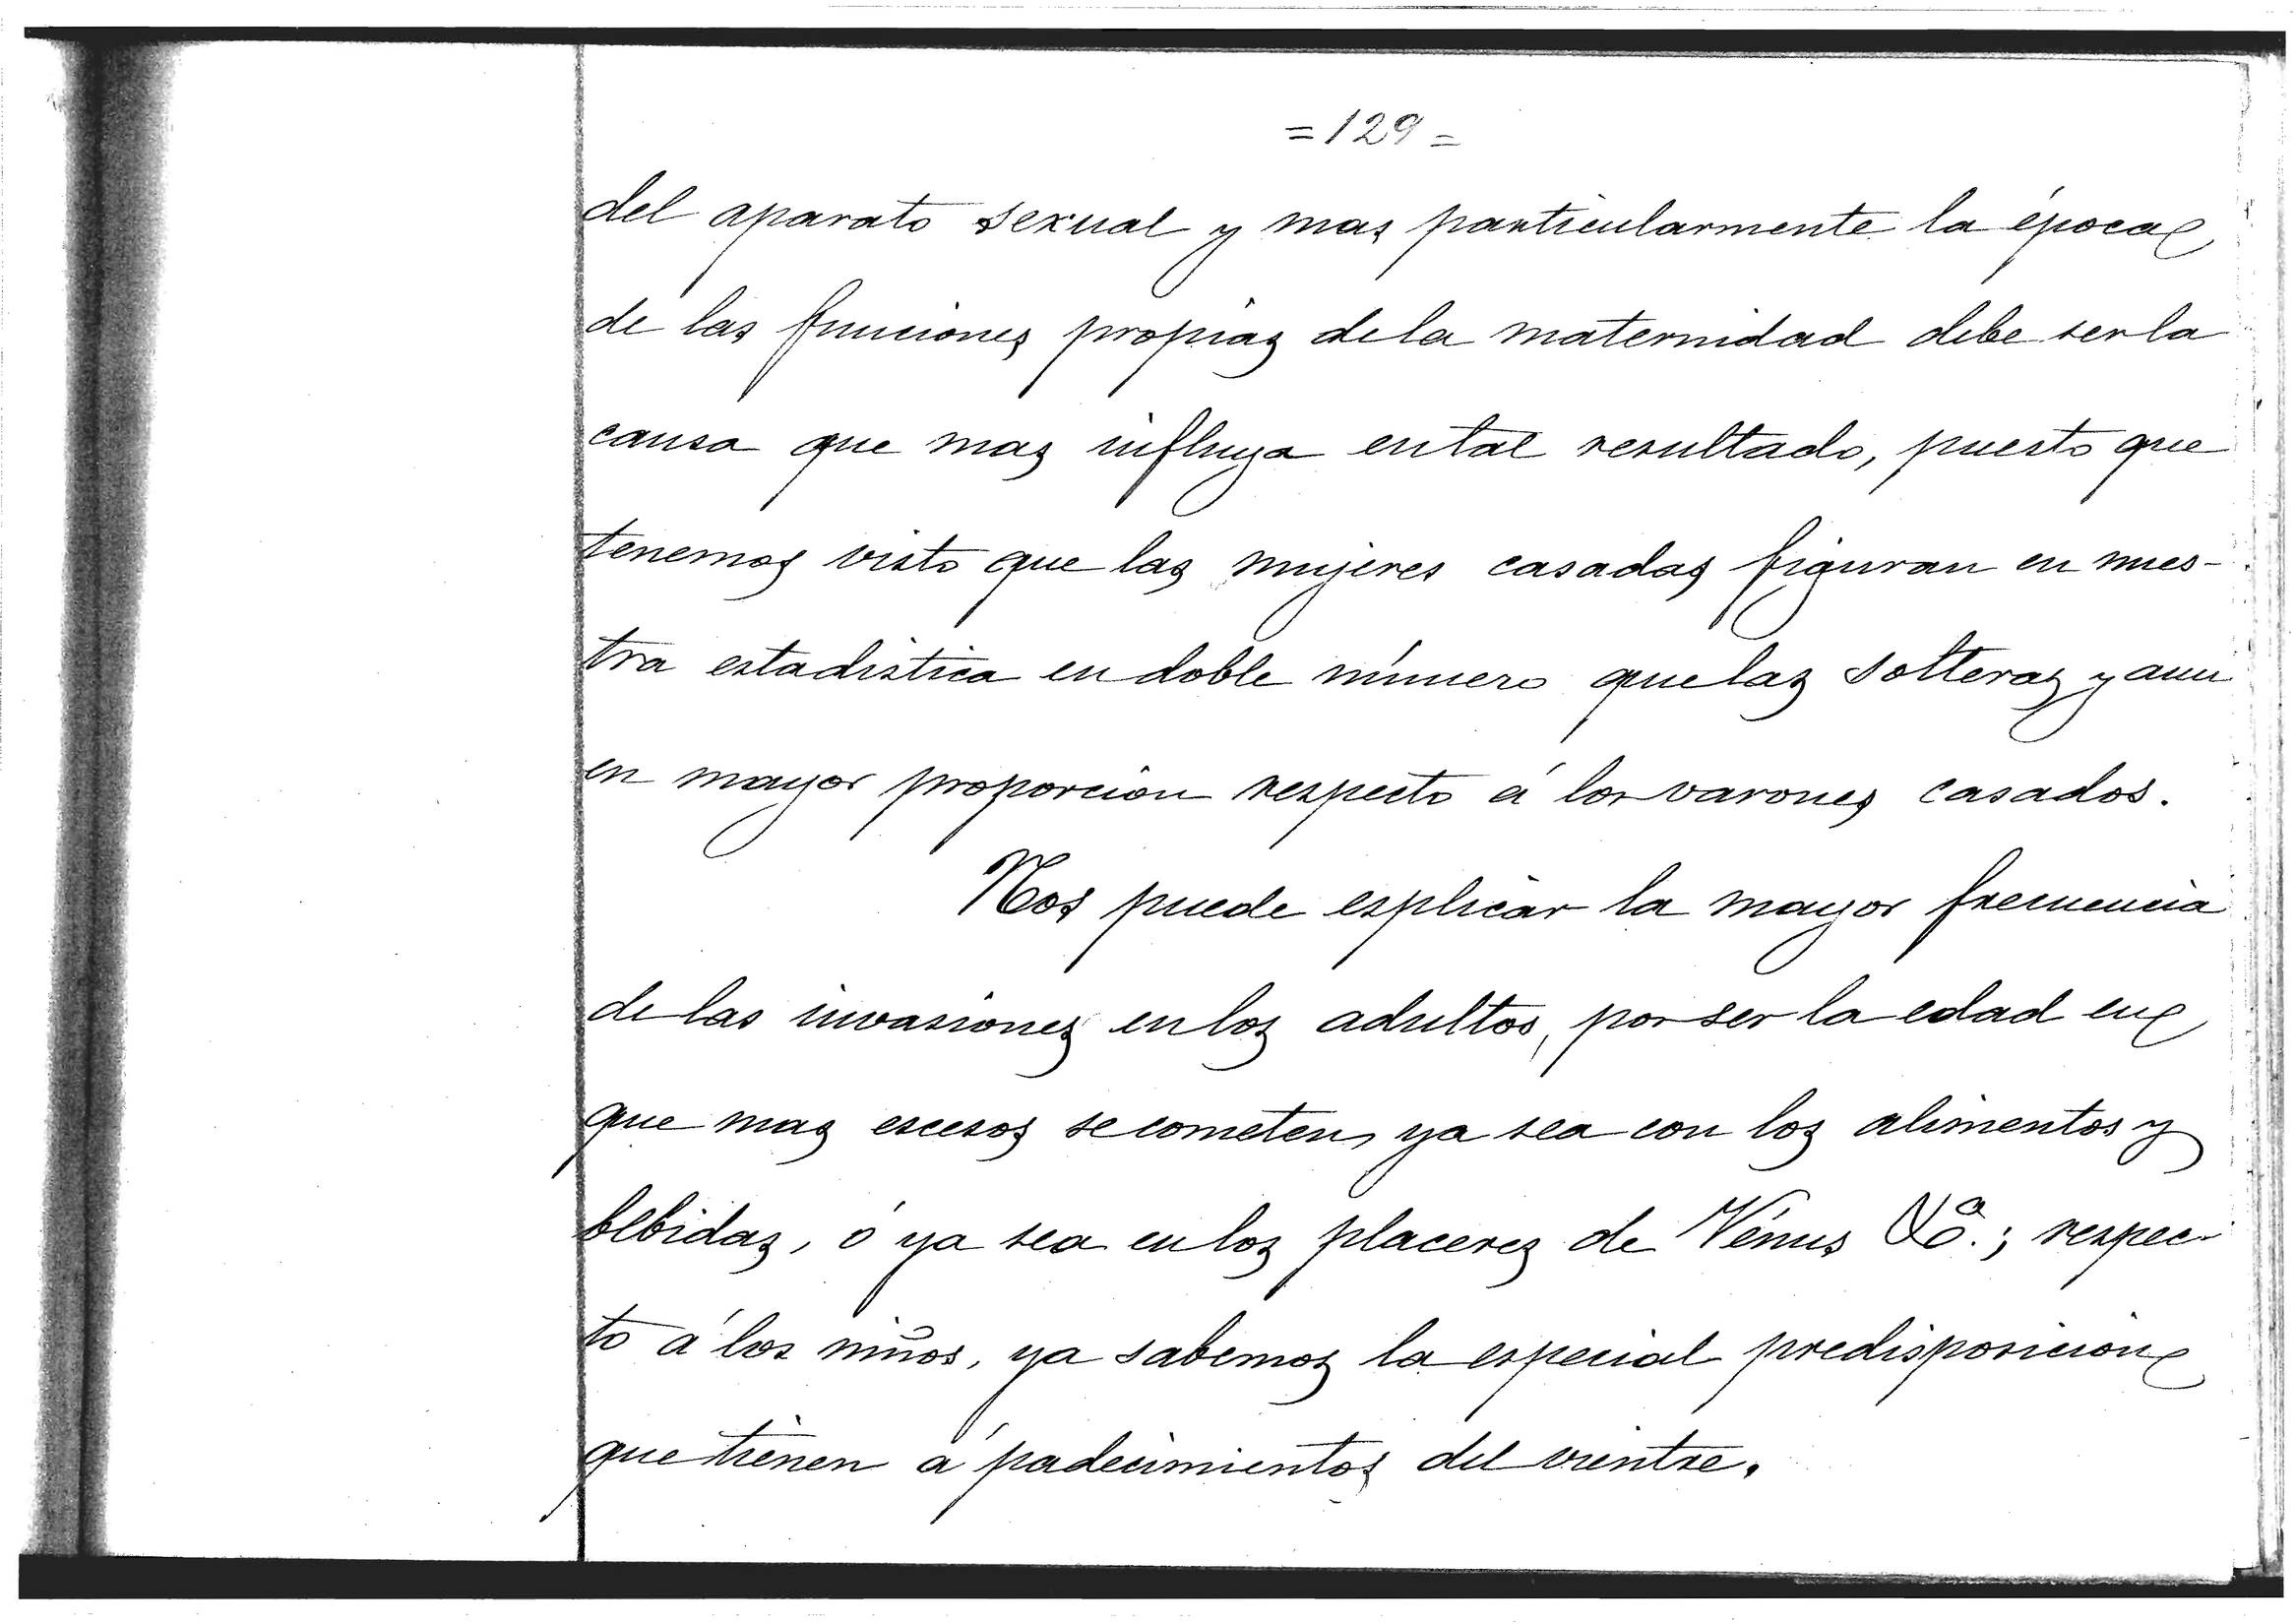 =129=
del aparato sexual y mas particularmente la época
de las funciones propias de la maternidad debe ser la
causa que mas influya en tal resultado, puesto que
tenemos visto que las mujeres casadas figuran en nues-
tra estadistica en doble número que las solteras y aun
en mayor proporcion respecto á los varones casados.
Nos puede esplicar la mayor frecuencia
de las invasiones en los adultos, por ser la edad en
que mas escesos se cometen, ya sea con los alimentos y
bebidas, ó ya sea en los placeres de Vénus &ª.; respec-
to á los niños, ya sabemos la especial predisposicion
que tienen á padecimientos del vientre.